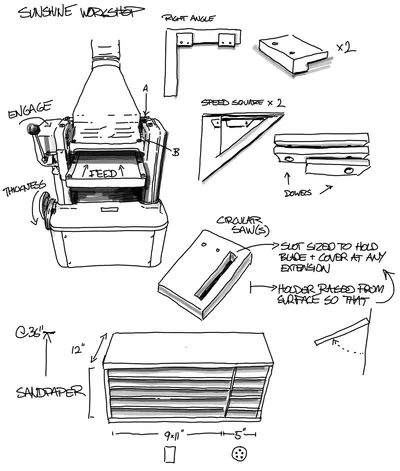 SUNSHINE WORKSHOP
RIGHT ANGLE
x2
A
ENGAGE
SPEED SQUARE x 2
B
FEED
THICKNESS
DOWELS
CIRCULAR
SAW(S)
SLOT SIZED TO HOLD
BLADE + COVER AT ANY
EXTENSION
HOLDER RAISED FROM
SURFACE SO THAT
@36"
12"
SANDPAPER
9x11"
5"